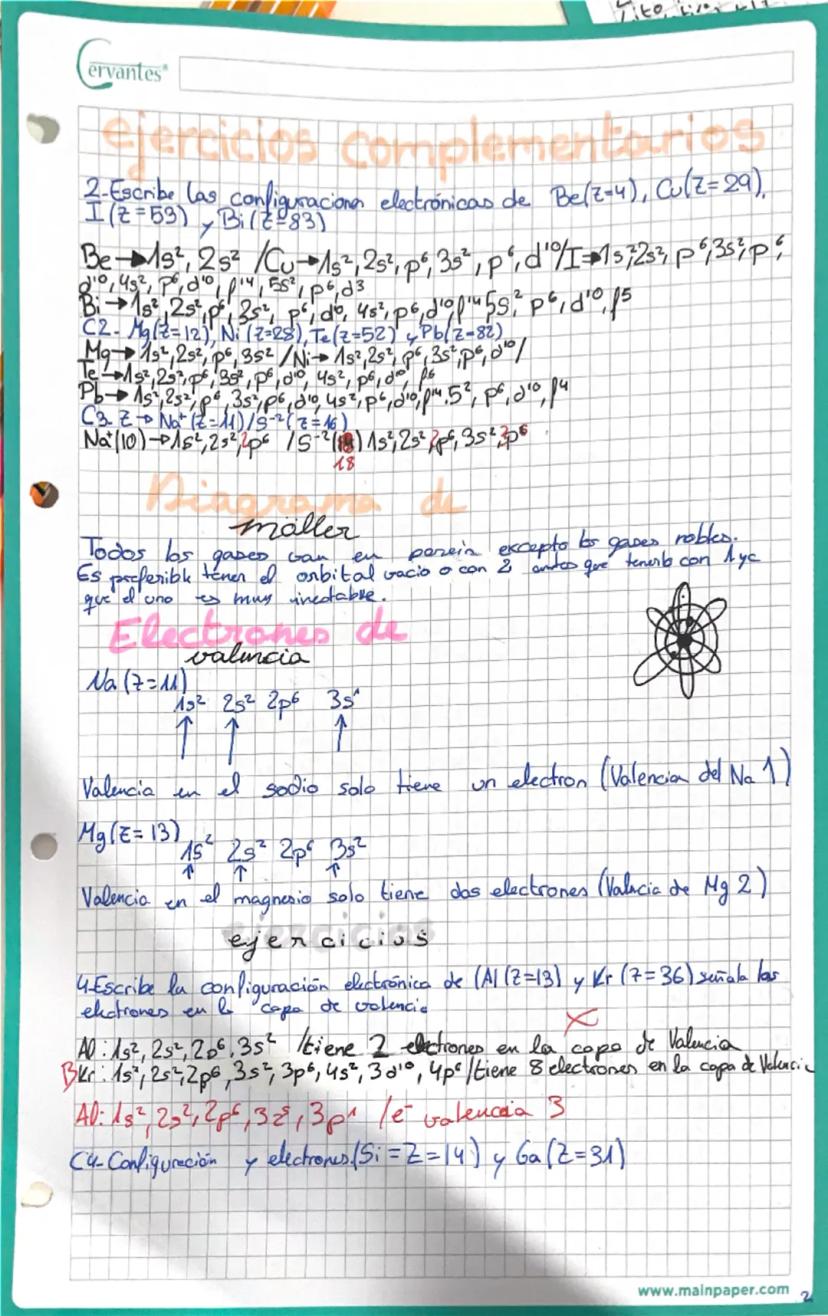 Cervantes®
ejercicios complementarios
2-Escribe las configuraciones electrónicas de Be(Z=4), Cu(Z=29),
I(Z=53) y Bi(Z=83)
Be→1s², 2s² /Cu→1s², 2s², p⁶, 3s², p⁶, d¹⁰/I→1s², 2s², p⁶, 3s², p⁶,
d¹⁰, 4s², p⁶, d¹⁰, f¹⁴, 5s², p⁶, d³
Bi→1s², 2s², p⁶, 3s², p⁶, d¹⁰, 4s², p⁶, d¹⁰, f¹⁴ 5s², p⁶, d¹⁰, f⁵
C2- Mg(Z=12), Ni(Z=28), Te(Z=52) y Pb(Z=82)
Mg→1s², 2s², p⁶, 3s² /Ni→1s², 2s², p⁶, 3s², p⁶, d¹⁰/
Te→1s², 2s², p⁶, 3s², p⁶, d¹⁰, 4s², p⁶, d¹⁰, f⁶
Pb→1s², 2s², p⁶, 3s², p⁶, d¹⁰, 4s², p⁶, d¹⁰, f¹⁴, 5², p⁶, d¹⁰, f⁴
C3. Z→Na⁺(Z=11)/S⁻²(Z=16)
Na⁺(10)→1s², 2s², 2p⁶ /S⁻²( ) 1s², 2s² 2p⁶, 3s² 3p⁶
18
Diagrama de
möller
Todos los gases van en pareja excepto los gases nobles.
Es preferible tener el orbital vacio o con 2 antes que tenerlo con 1 ya
que el uno es muy inestable.
Electrones de
valencia
Na(Z=11)
1s² 2s² 2p⁶ 3s¹
Valencia en el sodio solo tiene un electron (Valencia del Na 1)
Mg(Z=13)
1s² 2s² 2p⁶ 3s²
Valencia en el magnesio solo tiene dos electrones (Valncia de Mg 2)
ejercicios
4-Escribe la configuración electrónica de (Al(Z=13) y Kr(Z=36) señala los
electrones en la capa de valencia
Al: 1s², 2s², 2p⁶, 3s² /tiene 2 electrones en la capa de Valencia
B Kr: 1s², 2s², 2p⁶, 3s², 3p⁶, 4s², 3d¹⁰, 4p⁶/tiene 8 electrones en la capa de Valencia
Al: 1s², 2s², 2p⁶, 3s², 3p¹ /e⁻ valencia 3
C4- Configuración y electrones(Si=Z=14) y Ga(Z=31)
www.mainpaper.com
2